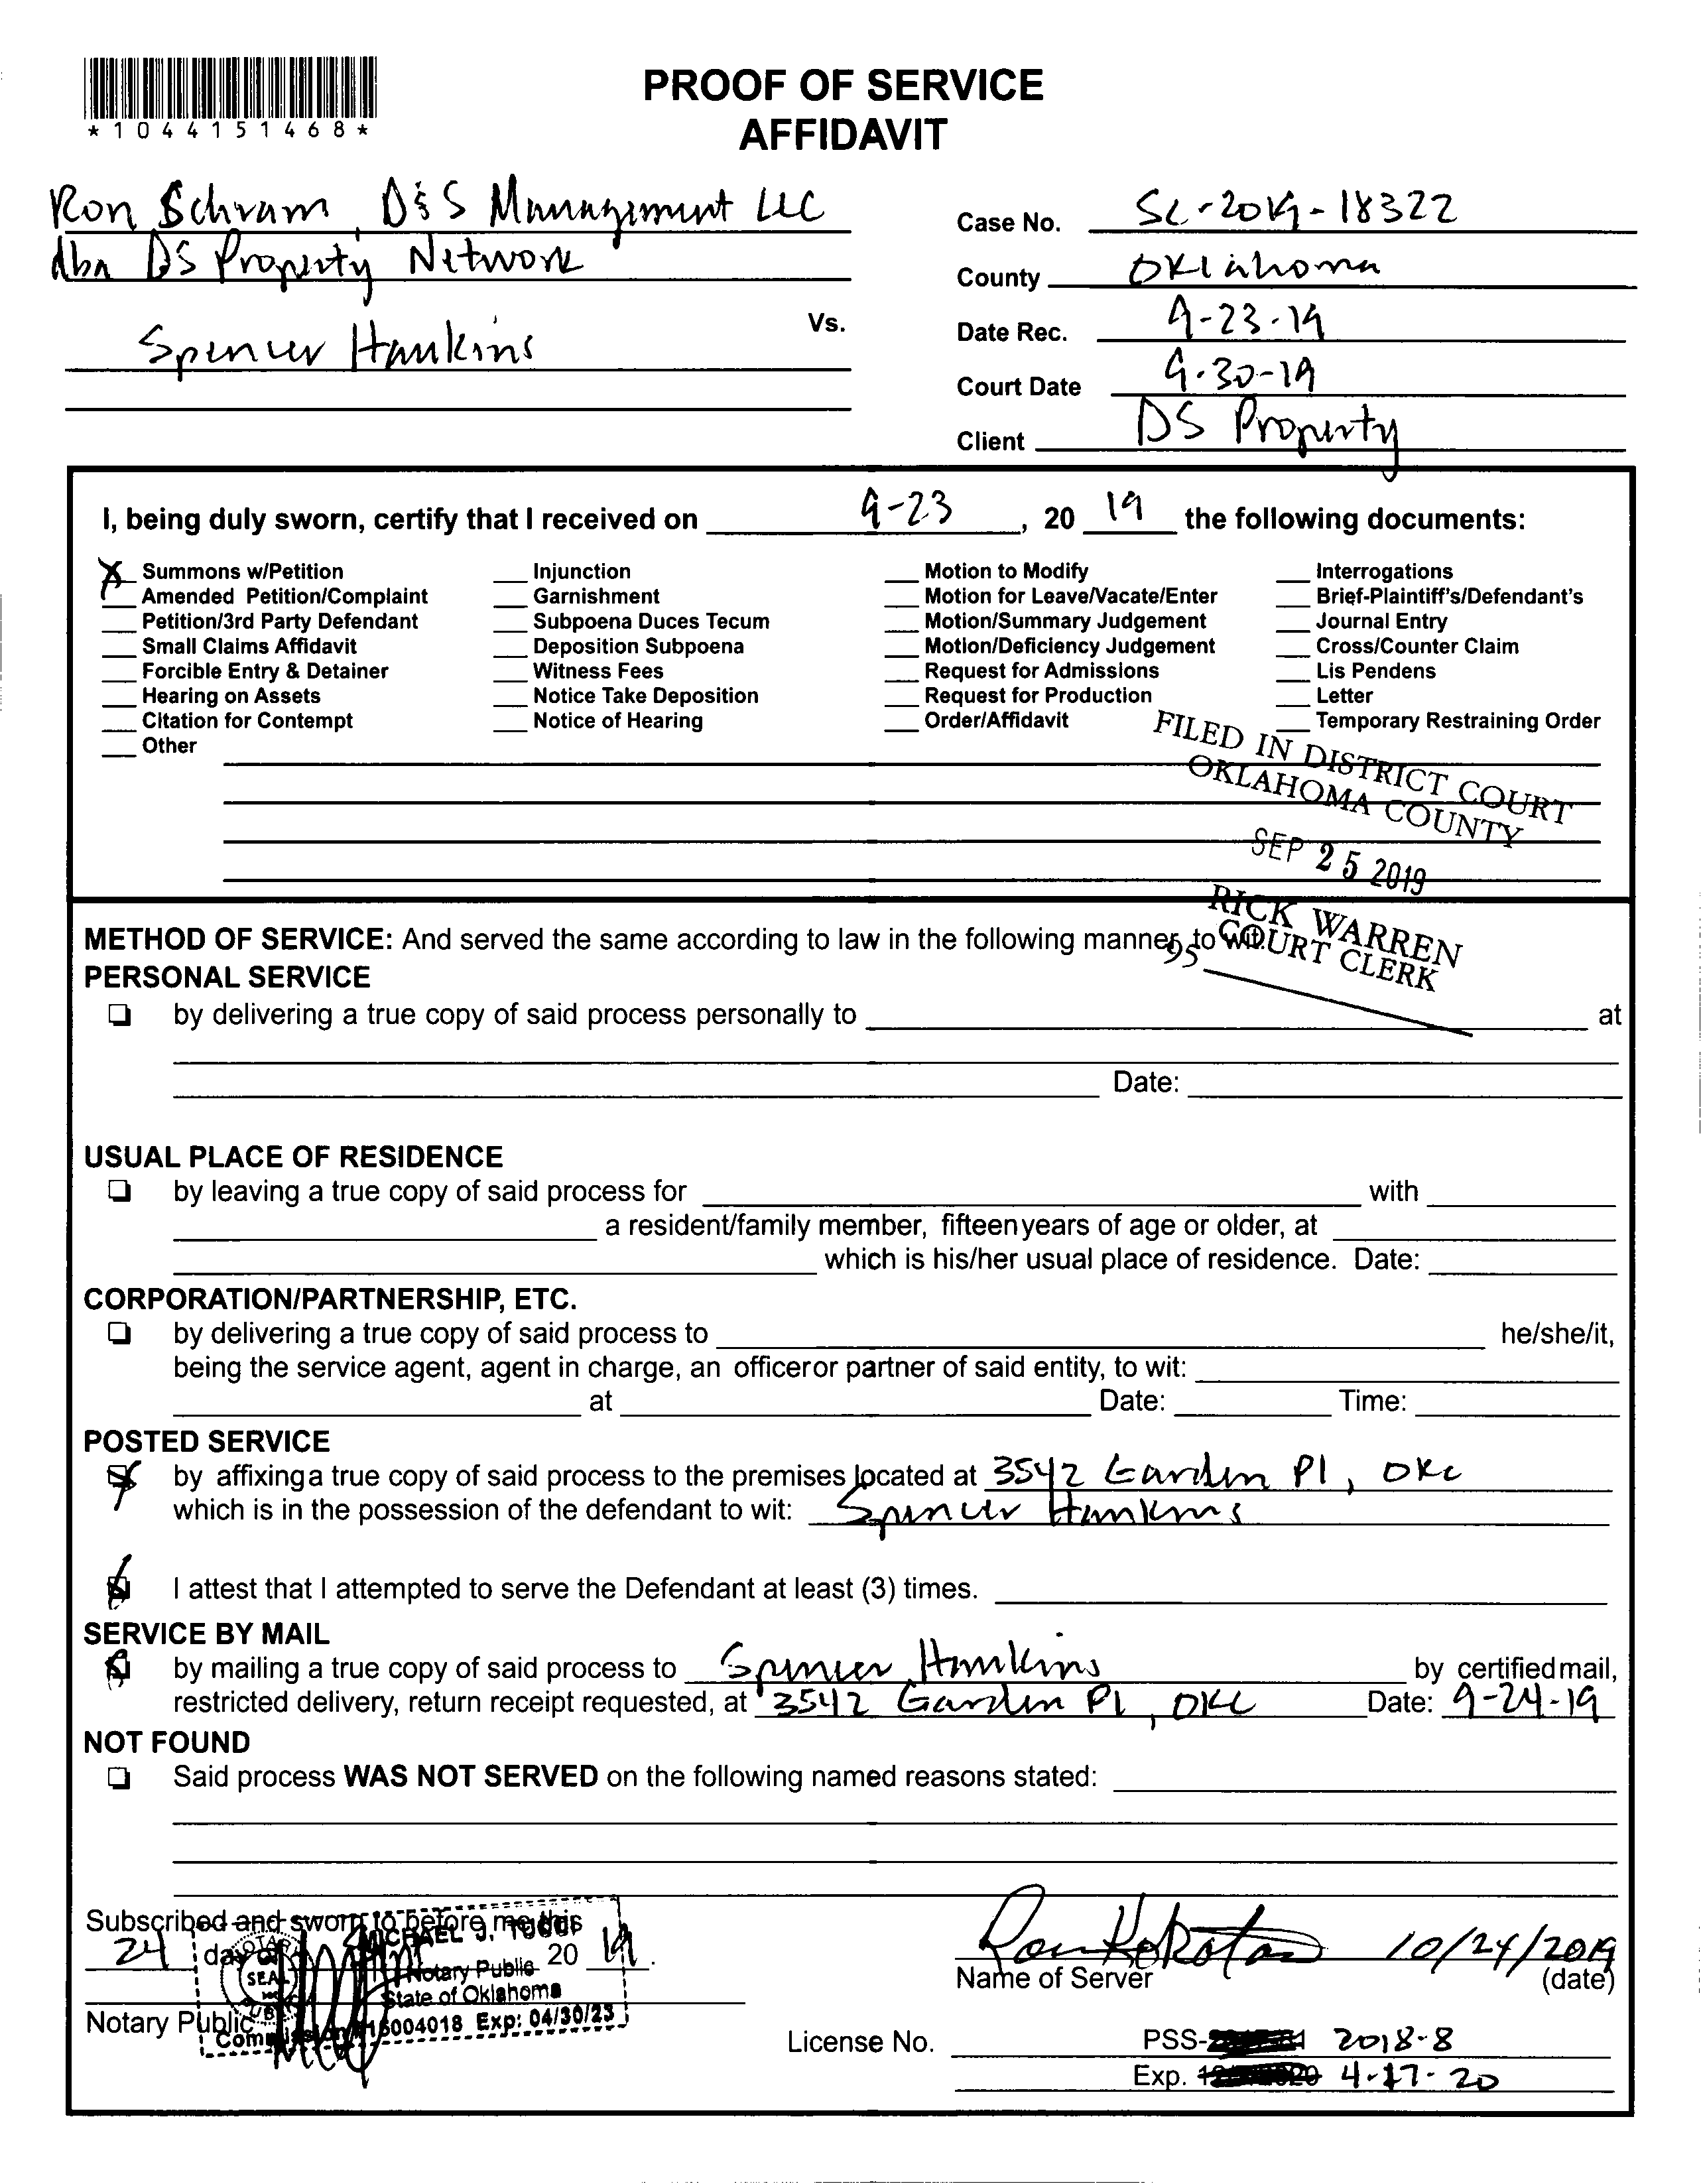 *1044151468*
PROOF OF SERVICE
AFFIDAVIT
Ron Schram, D&S Management LLC
dba DS Property Network
Vs.
Spencer Hankins
Case No. SC-2019-18322
County Oklahoma
Date Rec. 9-23-19
Court Date 9-30-19
Client DS Property
I, being duly sworn, certify that I received on 9-23, 20 19 the following documents:
X Summons w/Petition
Amended Petition/Complaint
Petition/3rd Party Defendant
Small Claims Affidavit
Forcible Entry & Detainer
Hearing on Assets
Citation for Contempt
Other
Injunction
Garnishment
Subpoena Duces Tecum
Deposition Subpoena
Witness Fees
Notice Take Deposition
Notice of Hearing
Motion to Modify
Motion for Leave/Vacate/Enter
Motion/Summary Judgement
Motion/Deficiency Judgement
Request for Admissions
Request for Production
Order/Affidavit
Interrogations
Brief-Plaintiff's/Defendant's
Journal Entry
Cross/Counter Claim
Lis Pendens
Letter
Temporary Restraining Order
FILED IN DISTRICT COURT
OKLAHOMA COUNTY
SEP 25 2019
RICK WARREN
COURT CLERK
95
METHOD OF SERVICE: And served the same according to law in the following manner, to wit:
PERSONAL SERVICE
by delivering a true copy of said process personally to at
Date:
USUAL PLACE OF RESIDENCE
by leaving a true copy of said process for with
a resident/family member, fifteen years of age or older, at
which is his/her usual place of residence. Date:
CORPORATION/PARTNERSHIP, ETC.
by delivering a true copy of said process to he/she/it,
being the service agent, agent in charge, an officer or partner of said entity, to wit:
at Date: Time:
POSTED SERVICE
by affixing a true copy of said process to the premises located at 3542 Garden Pl, OKC
which is in the possession of the defendant to wit: Spencer Hankins
I attest that I attempted to serve the Defendant at least (3) times.
SERVICE BY MAIL
by mailing a true copy of said process to Spencer Hankins by certified mail,
restricted delivery, return receipt requested, at 3542 Garden Pl, OKC Date: 9-24-19
NOT FOUND
Said process WAS NOT SERVED on the following named reasons stated:
Subscribed and sworn to before me this
24 day of 20 19.
Notary Public
MICHAEL J. TUCCI
Notary Public
State of Oklahoma
Commission #15004018 Exp: 04/30/23
SEAL
10/24/2019
Name of Server (date)
License No. PSS- 2018-8
Exp. 4-17-20